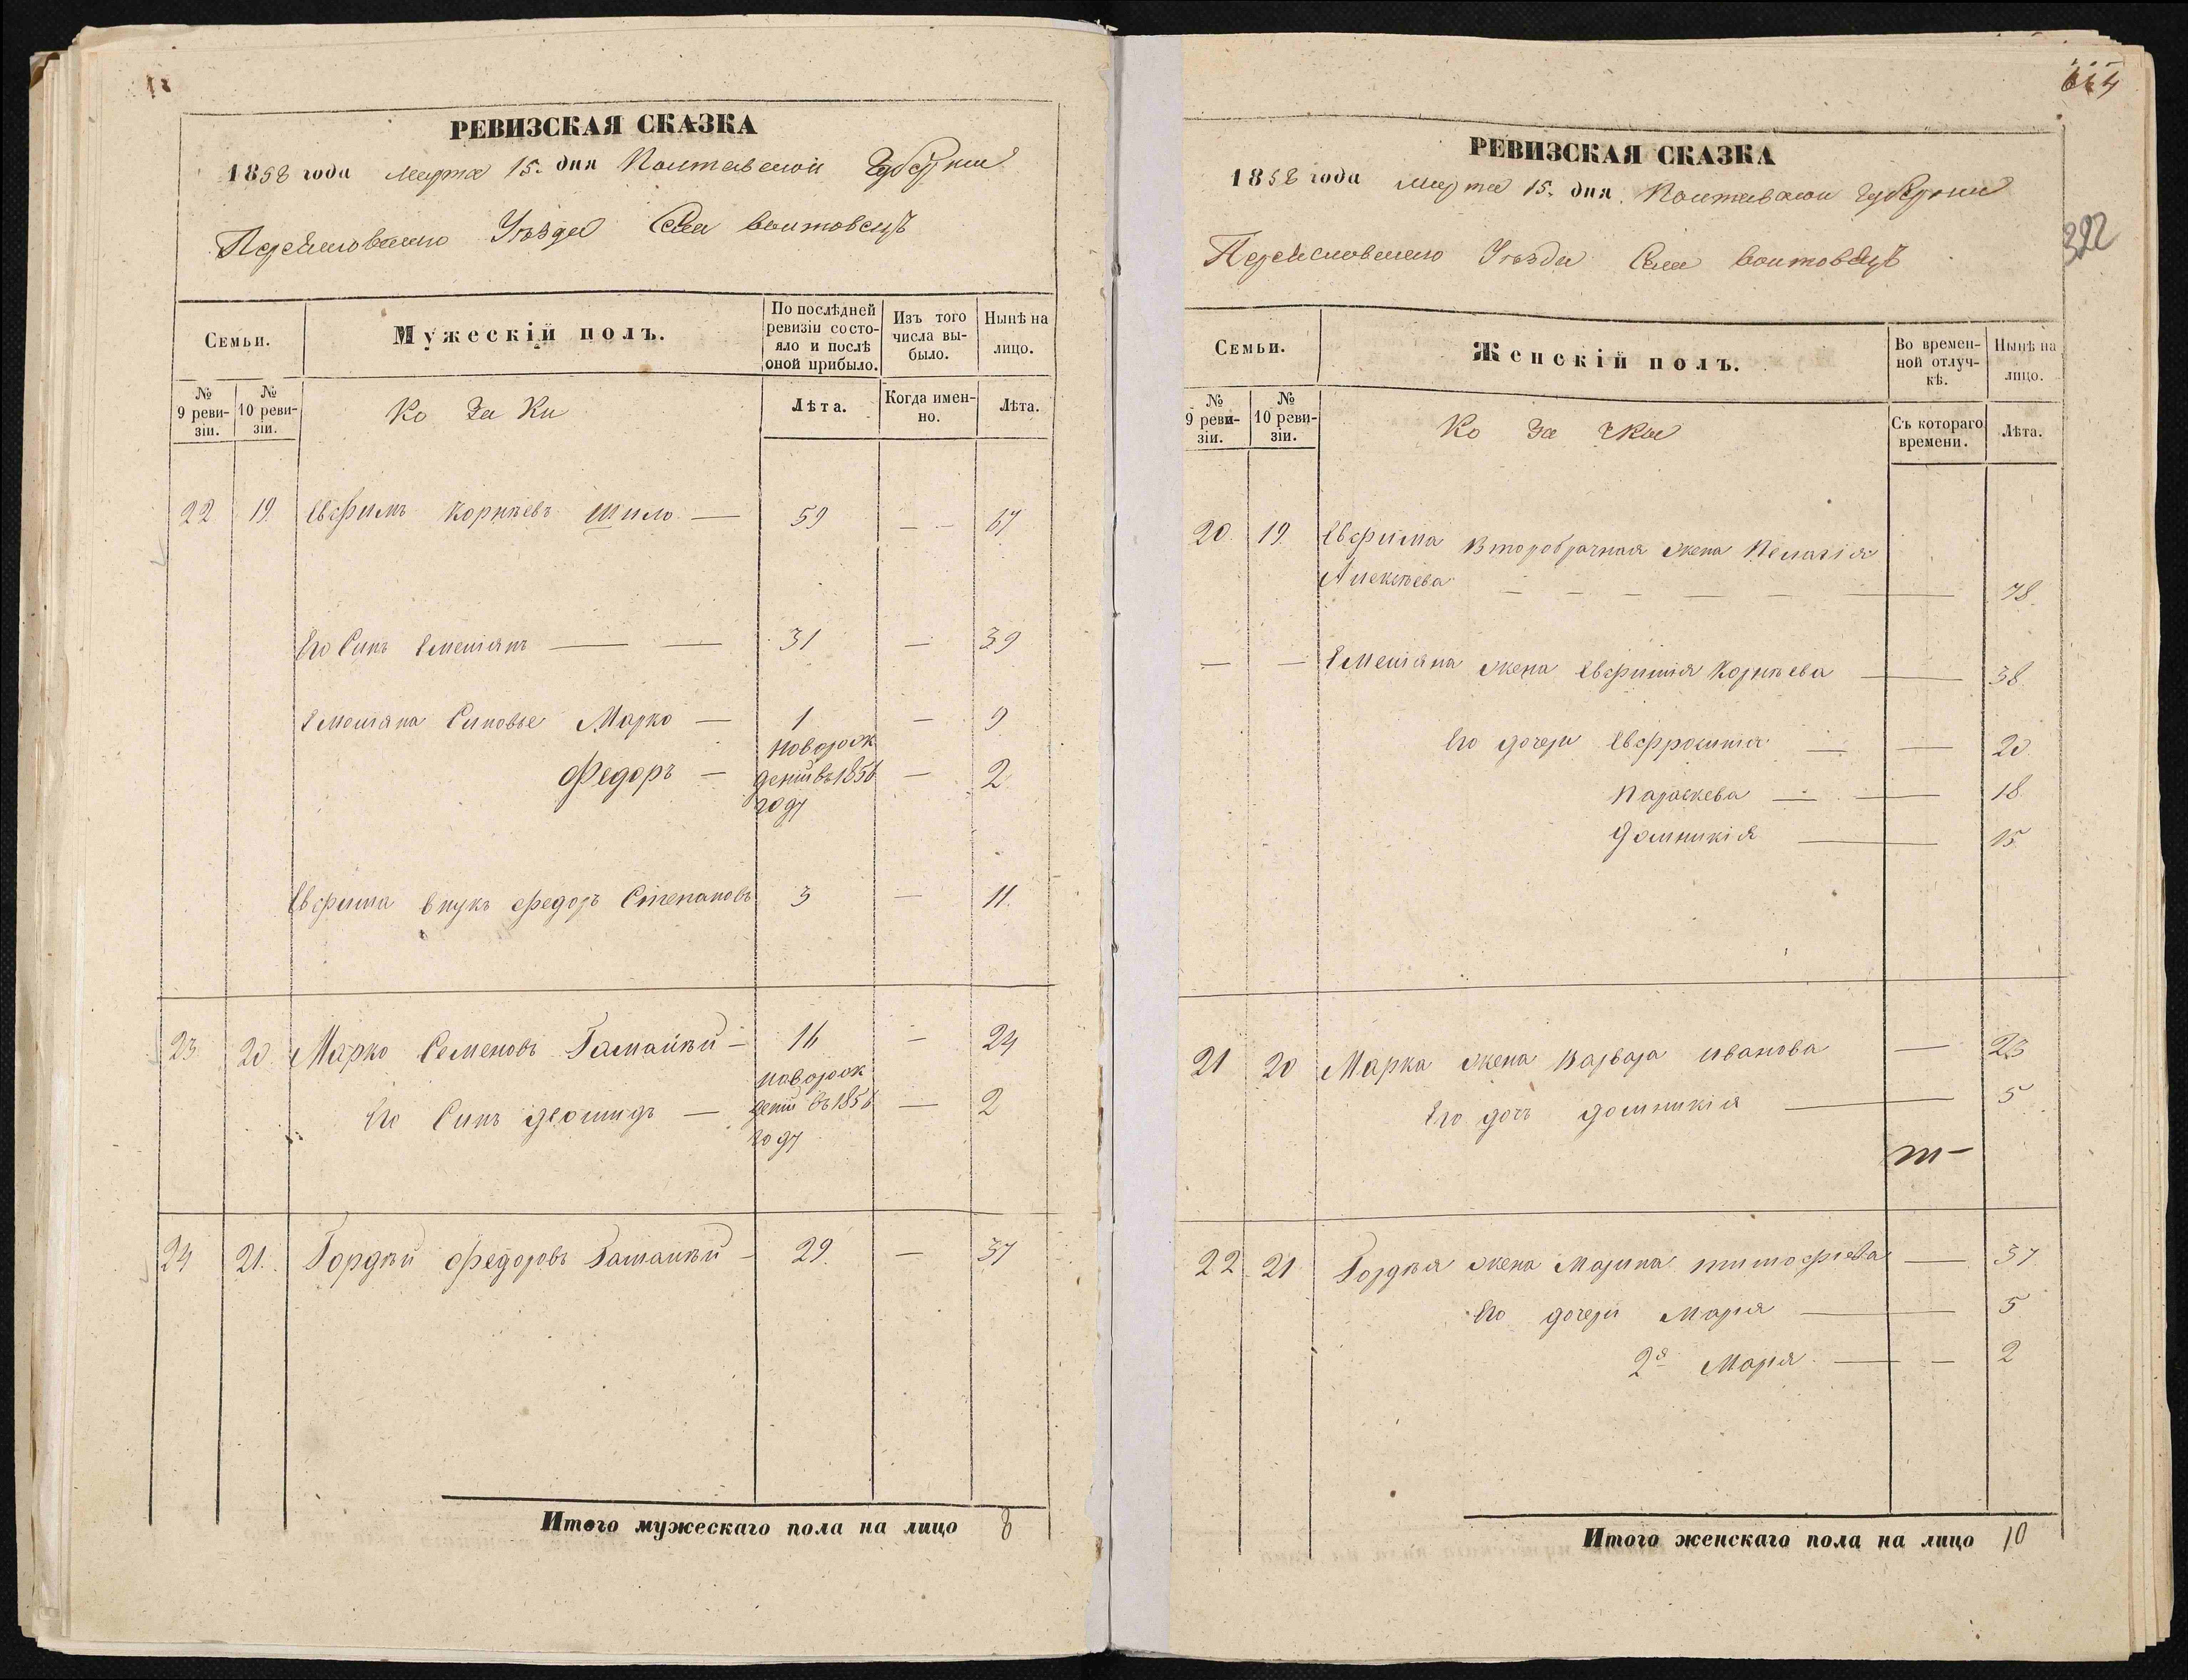 РЕВИЗСКАЯ СКАЗКА
1858 года Марта 15. дня Полтавской Губернии
Переяславскаго Уѣзда Села Воитовецъ
Семьи.
Мужескій полъ.
По послѣдней ревизіи состояло и послѣ оной прибыло.
Изъ того числа выбыло.
Нынѣ на лицо.
№ 9 ревизіи.
№ 10 ревизіи.
Ко за ки
Лѣта.
Когда именно.
Лѣта.
22 19. Евфимъ Корнѣевъ Шило — 59 — — 67
Его Сынъ Емеліянъ — — 31 — 39
Емеліяна Синовье Марко — 1 — 9
Федоръ — новорожденій въ 1856 году — 2
Евфима внукъ Федоръ Степановъ 3 — 11.
23 20. Марко Семеновъ Гамалѣй — 16 — 24
Его Синъ Леонидъ — новорожденій въ 1856 году — 2
24 21. Гордѣй Федоровъ Гамалѣй — 29. — 37
Итого мужескаго пола на лицо 8
322
РЕВИЗСКАЯ СКАЗКА
1858 года Марта 15. дня Полтавской Губернии
Переяславскаго Уѣзда Села Воитовецъ
Семьи.
Женскій полъ.
Во временной отлучкѣ.
Нынѣ на лицо.
№ 9 ревизіи.
№ 10 ревизіи.
Ко за чки
Съ котораго времени.
Лѣта.
20. 19. Евфима Второбрачная жена Пелагія
Алексѣева — — — — — — 78.
— — Емеліяна жена Евфимія Корнѣева — 38
Его дочери Евфросинія — — 20
Параскева — — 18
Домникія — 15
21 20 Марка жена Варвара Иванова — 23
Его дочъ Домникія — 5
22 21 Гордѣя жена Марина Тимофѣева — 37
Его дочери Марія — 5
2я Марія — — 2
Итого женскаго пола на лицо 10